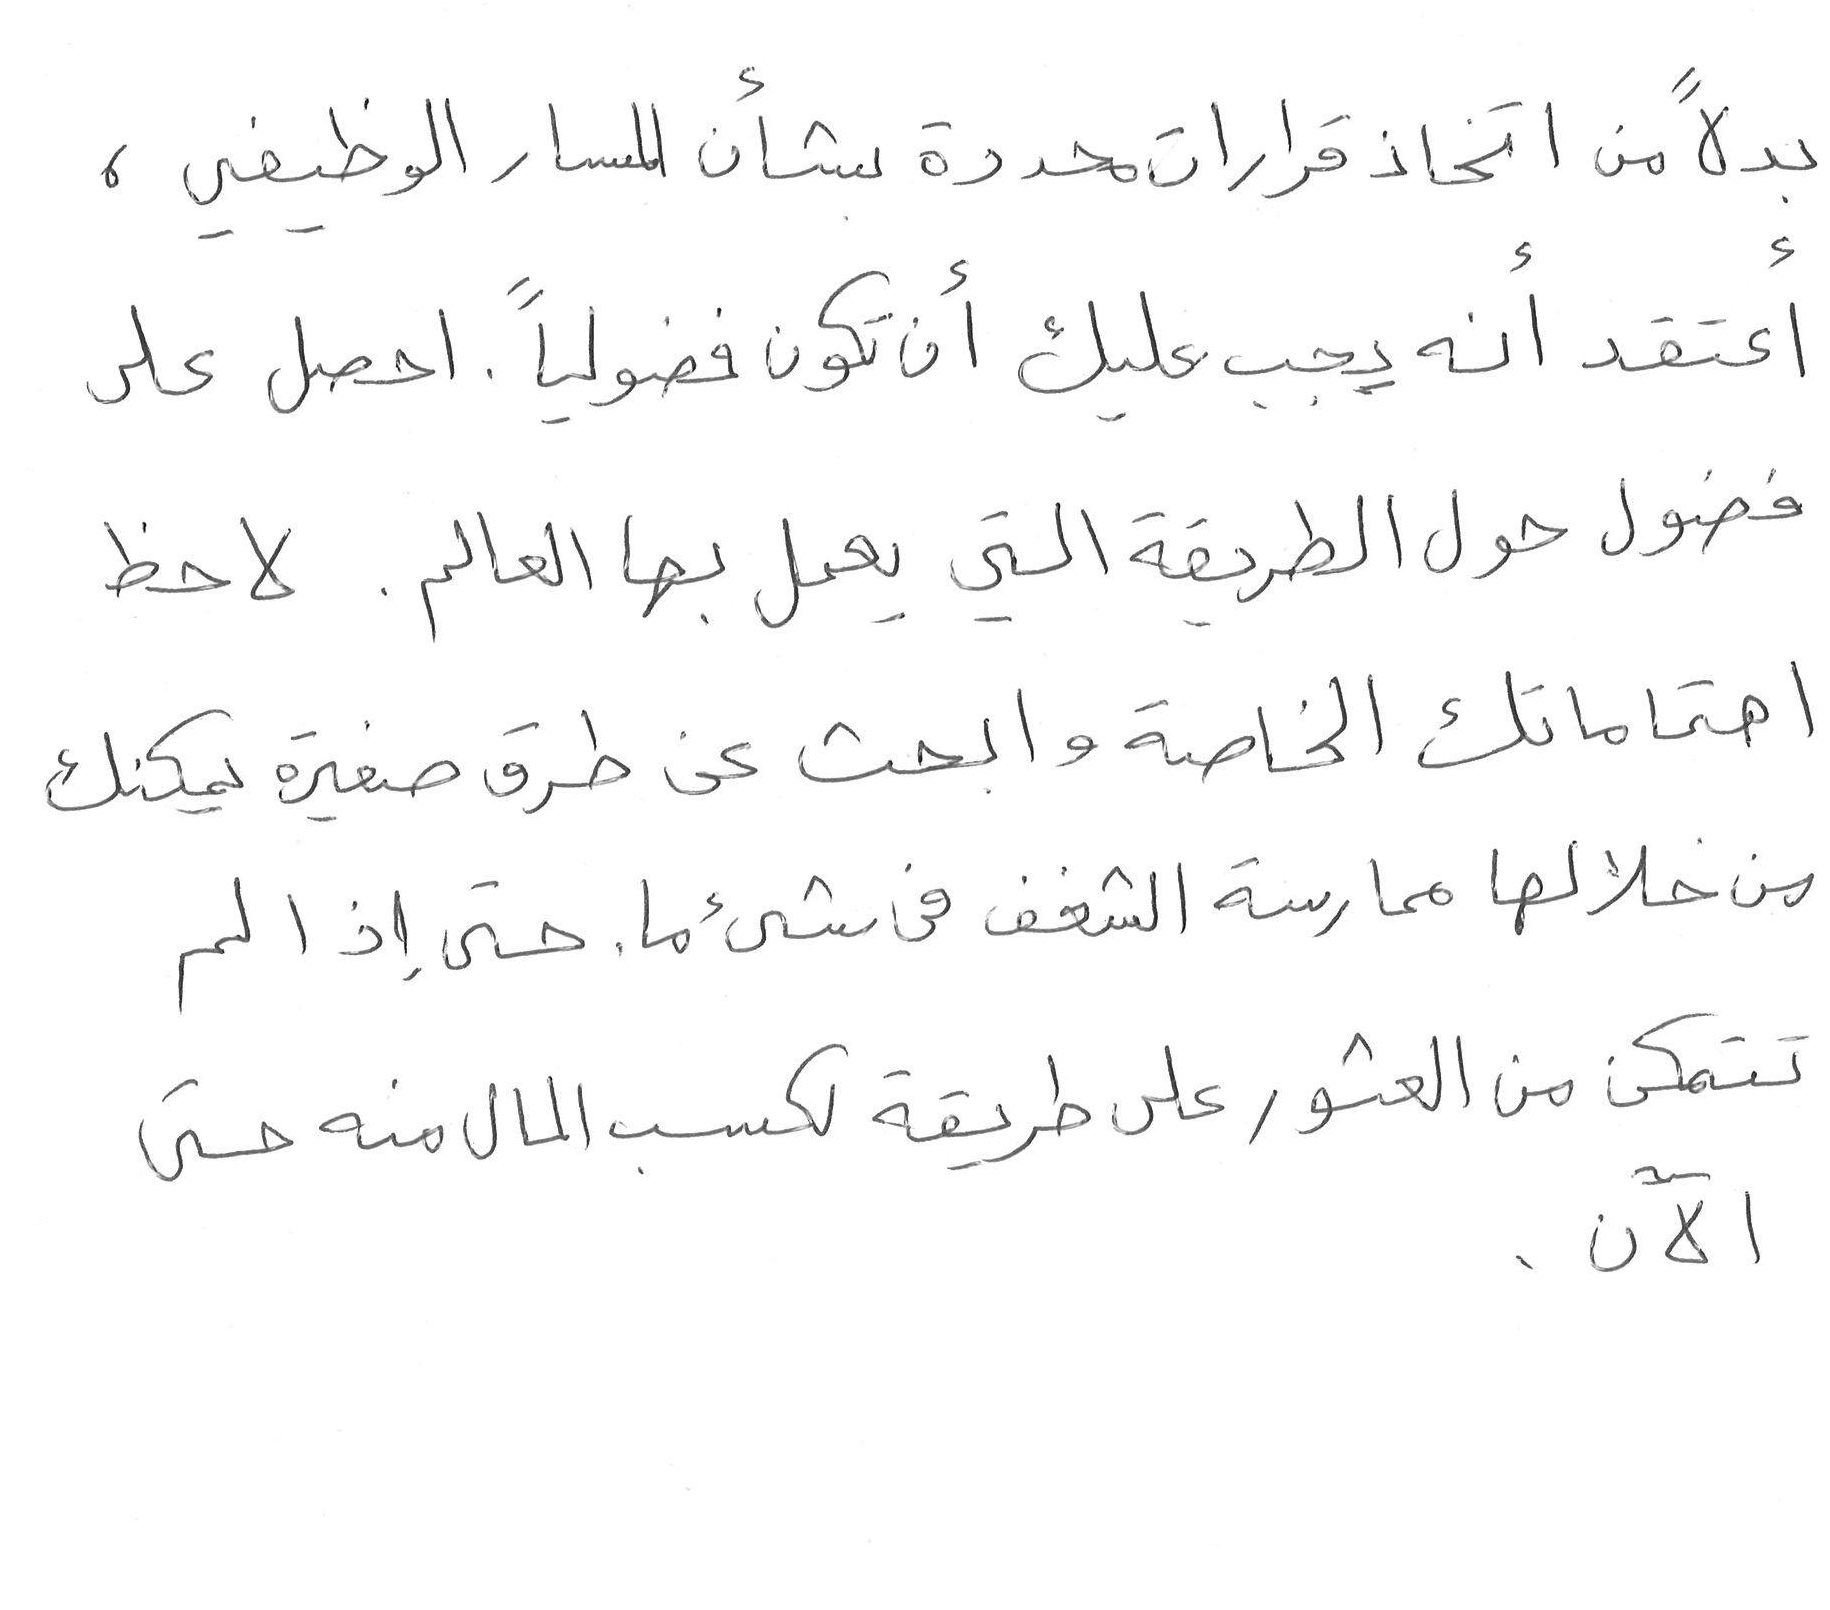 بدلاً من اتخاذ قرارات محددة بشأن المسار الوظيفي ،
أعتقد أنه يجب عليك أن تكون فضولياً . احصل على
فضول حول الطريقة التي يعمل بها العالم . لاحظ
اهتماماتك الخاصة وابحث عن طرق صغيرة يمكنك
من خلالها ممارسة الشغف فى شىء ما . حتى إذا لم
تتمكن من العثور على طريقة لكسب المال منه حتى
الآن .